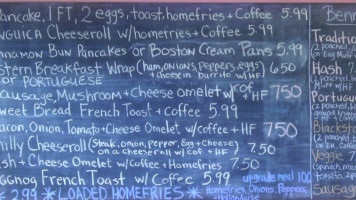 ancake, 1 FT, 2 eggs, toast, homefries + Coffee 5.99
NGUICA Cheeseroll w/homefries + Coffee 5.99
innamon Bun Pancakes or Boston Cream Pans 5.99
stern Breakfast Wrap (ham, onions, peppers, eggs) 6.50
+ cheese in burrito w/HF
OF PORTUGUESE
ausage, Mushroom + Cheese omelet w/cof + HF 7.50
weet Bread French Toast + Coffee 5.99
acon, Onion, Tomato + Cheese Omelet w/coffee + HF 7.50
hilly Cheeseroll (Steak, onion, pepper, Egg + Cheese) on a cheeseroll w/cof + HF 7.50
sh + Cheese Omelet w/Coffee + Homefries 7.50
ggnog French Toast w/ Coffee 5.99
upgrade meal 1.00
2.99 *LOADED HOMEFRIES*
Homefries, Onions, Peppers,
Ben
Traditio
(2 poached,
on Eng Muff
Hash
(2 poached,
Muff w/HF
Portugu
(2 poached
Blackst
(2 poached
Veggie 7
(Spinach, on
tomato, 2 po
Sausag